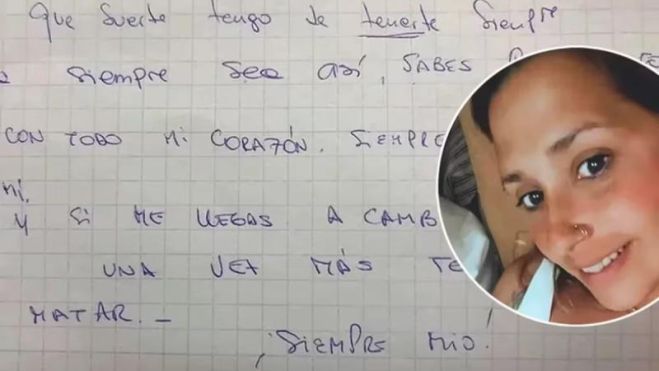 Que suerte tengo de tenerte siempre
siempre sea así, SABES
CON TODO MI CORAZÓN. SIEMPRE
mí.
Y SI ME LLEGAS A CAMB
UNA VEZ MÁS TE
MATAR. –
¡SIEMPRE MIO!